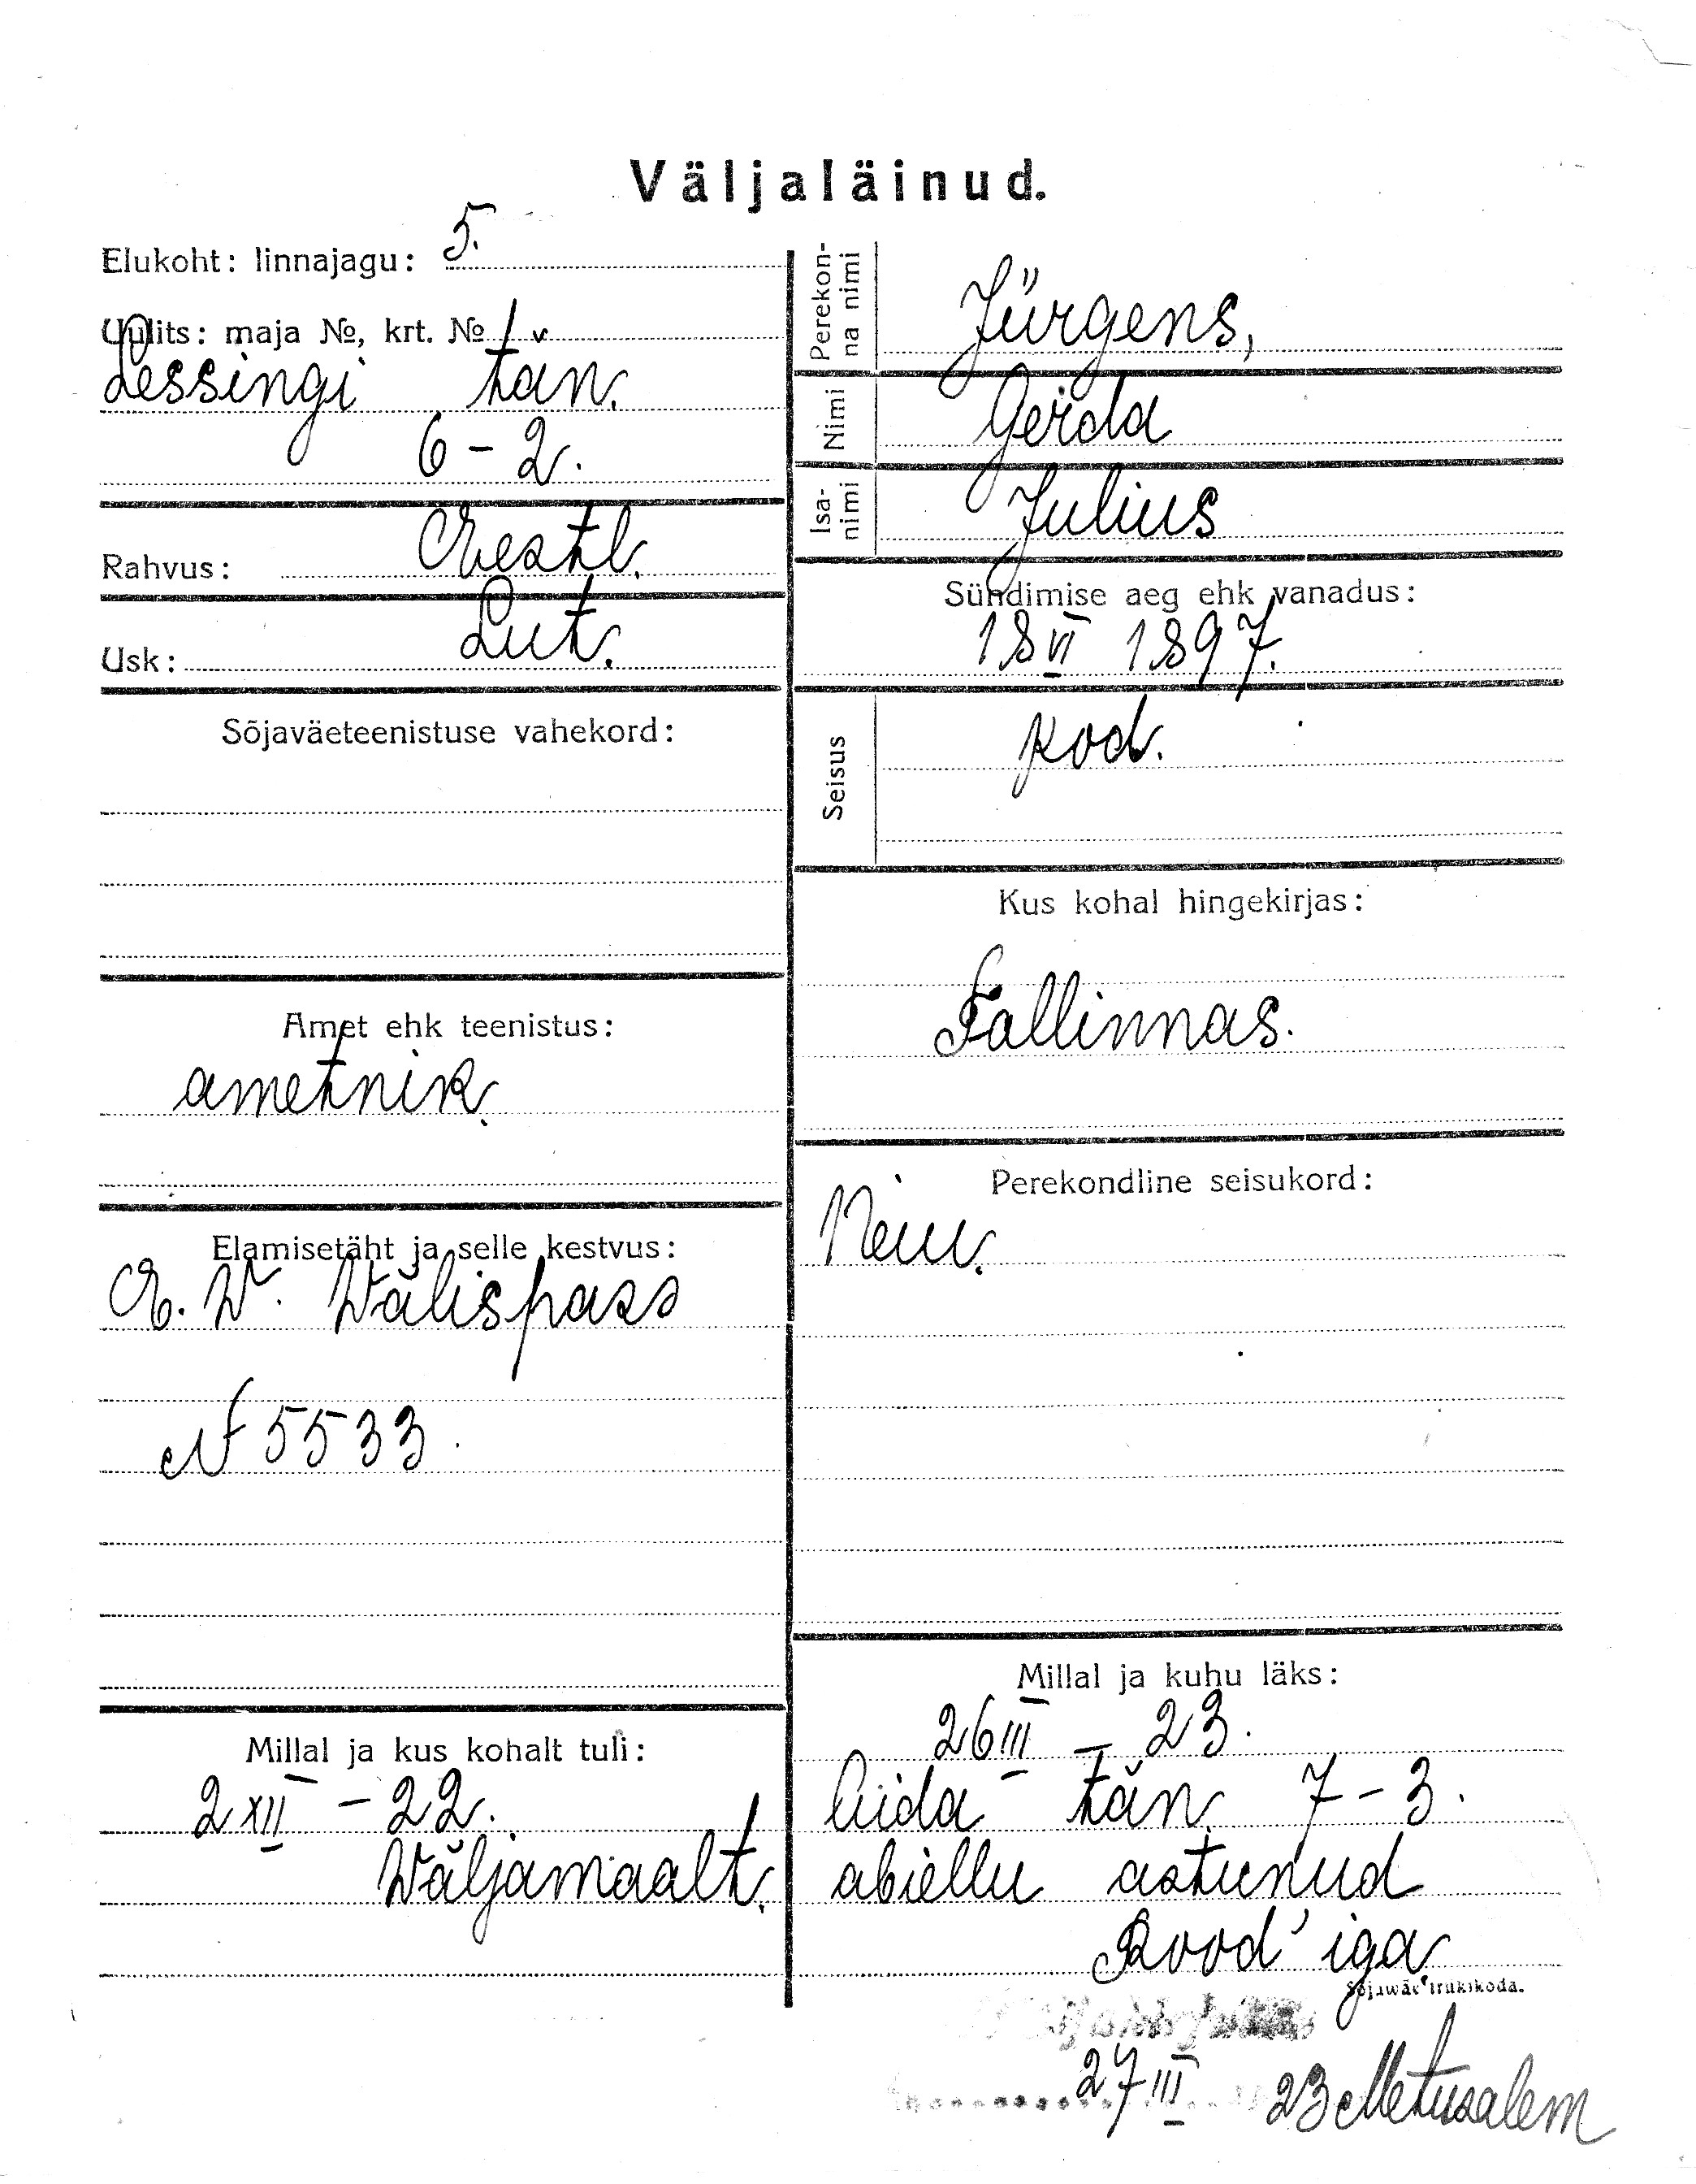 Väljaläinud.
Elukoht: linnajagu: 5.
Uulits: maja №, krt. №
Lessingi tän.
6 - 2.
Rahvus: Eestl.
Usk: Lut.
Sõjaväeteenistuse vahekord:
Amet ehk teenistus:
ametnik.
Elamisetäht ja selle kestvus:
E. W. Wälispass
N 5533.
Millal ja kus kohalt tuli:
2 XII - 22.
Wäljamaalt.
Perekonna nimi Jürgens,
Nimi Gerda
Isanimi Julius
Sündimise aeg ehk vanadus:
18 VI 1897.
Seisus kod.
Kus kohal hingekirjas:
Tallinnas.
Perekondline seisukord:
Neiu.
Millal ja kuhu läks:
26 III - 23.
Aida tän. 7 - 3.
abiellu astunud
Rood'iga
Sõjawäe trükikoda.
27 III 23 Metusalem